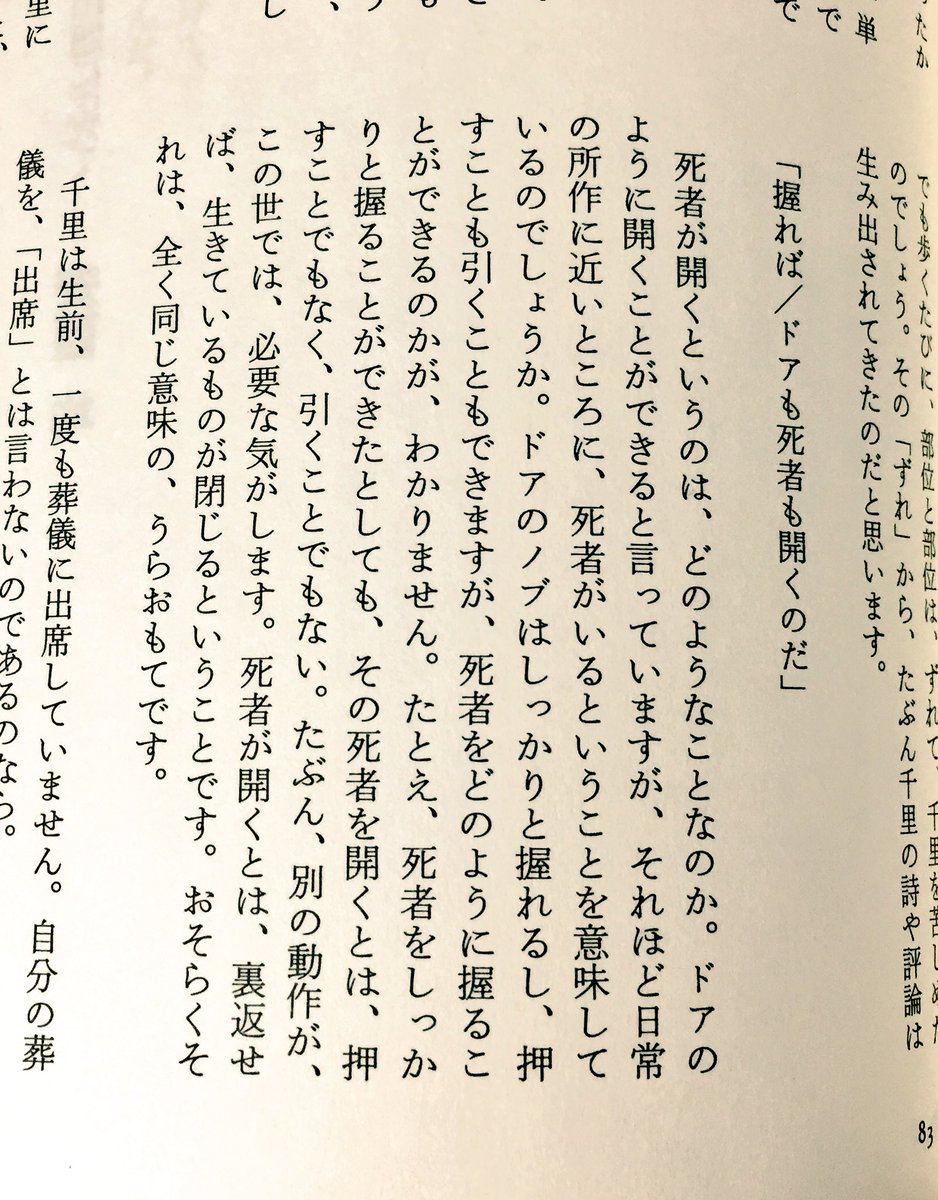 たか
単
で
で
。
し
、
う
も
さ
里に
でも歩くたびに、部位と部位は、ずれて、千里を苦しめた
のでしょう。その「ずれ」から、たぶん千里の詩や評論は
生み出されてきたのだと思います。
「握れば／ドアも死者も開くのだ」
死者が開くというのは、どのようなことなのか。ドアの
ように開くことができると言っていますが、それほど日常
の所作に近いところに、死者がいるということを意味して
いるのでしょうか。ドアのノブはしっかりと握れるし、押
すことも引くこともできますが、死者をどのように握るこ
とができるのかが、わかりません。たとえ、死者をしっか
りと握ることができたとしても、その死者を開くとは、押
すことでもなく、引くことでもない。たぶん、別の動作が、
この世では、必要な気がします。死者が開くとは、裏返せ
ば、生きているものが閉じるということです。おそらくそ
れは、全く同じ意味の、うらおもてです。
千里は生前、一度も葬儀に出席していません。自分の葬
儀を、「出席」とは言わないのであるのなら。
83